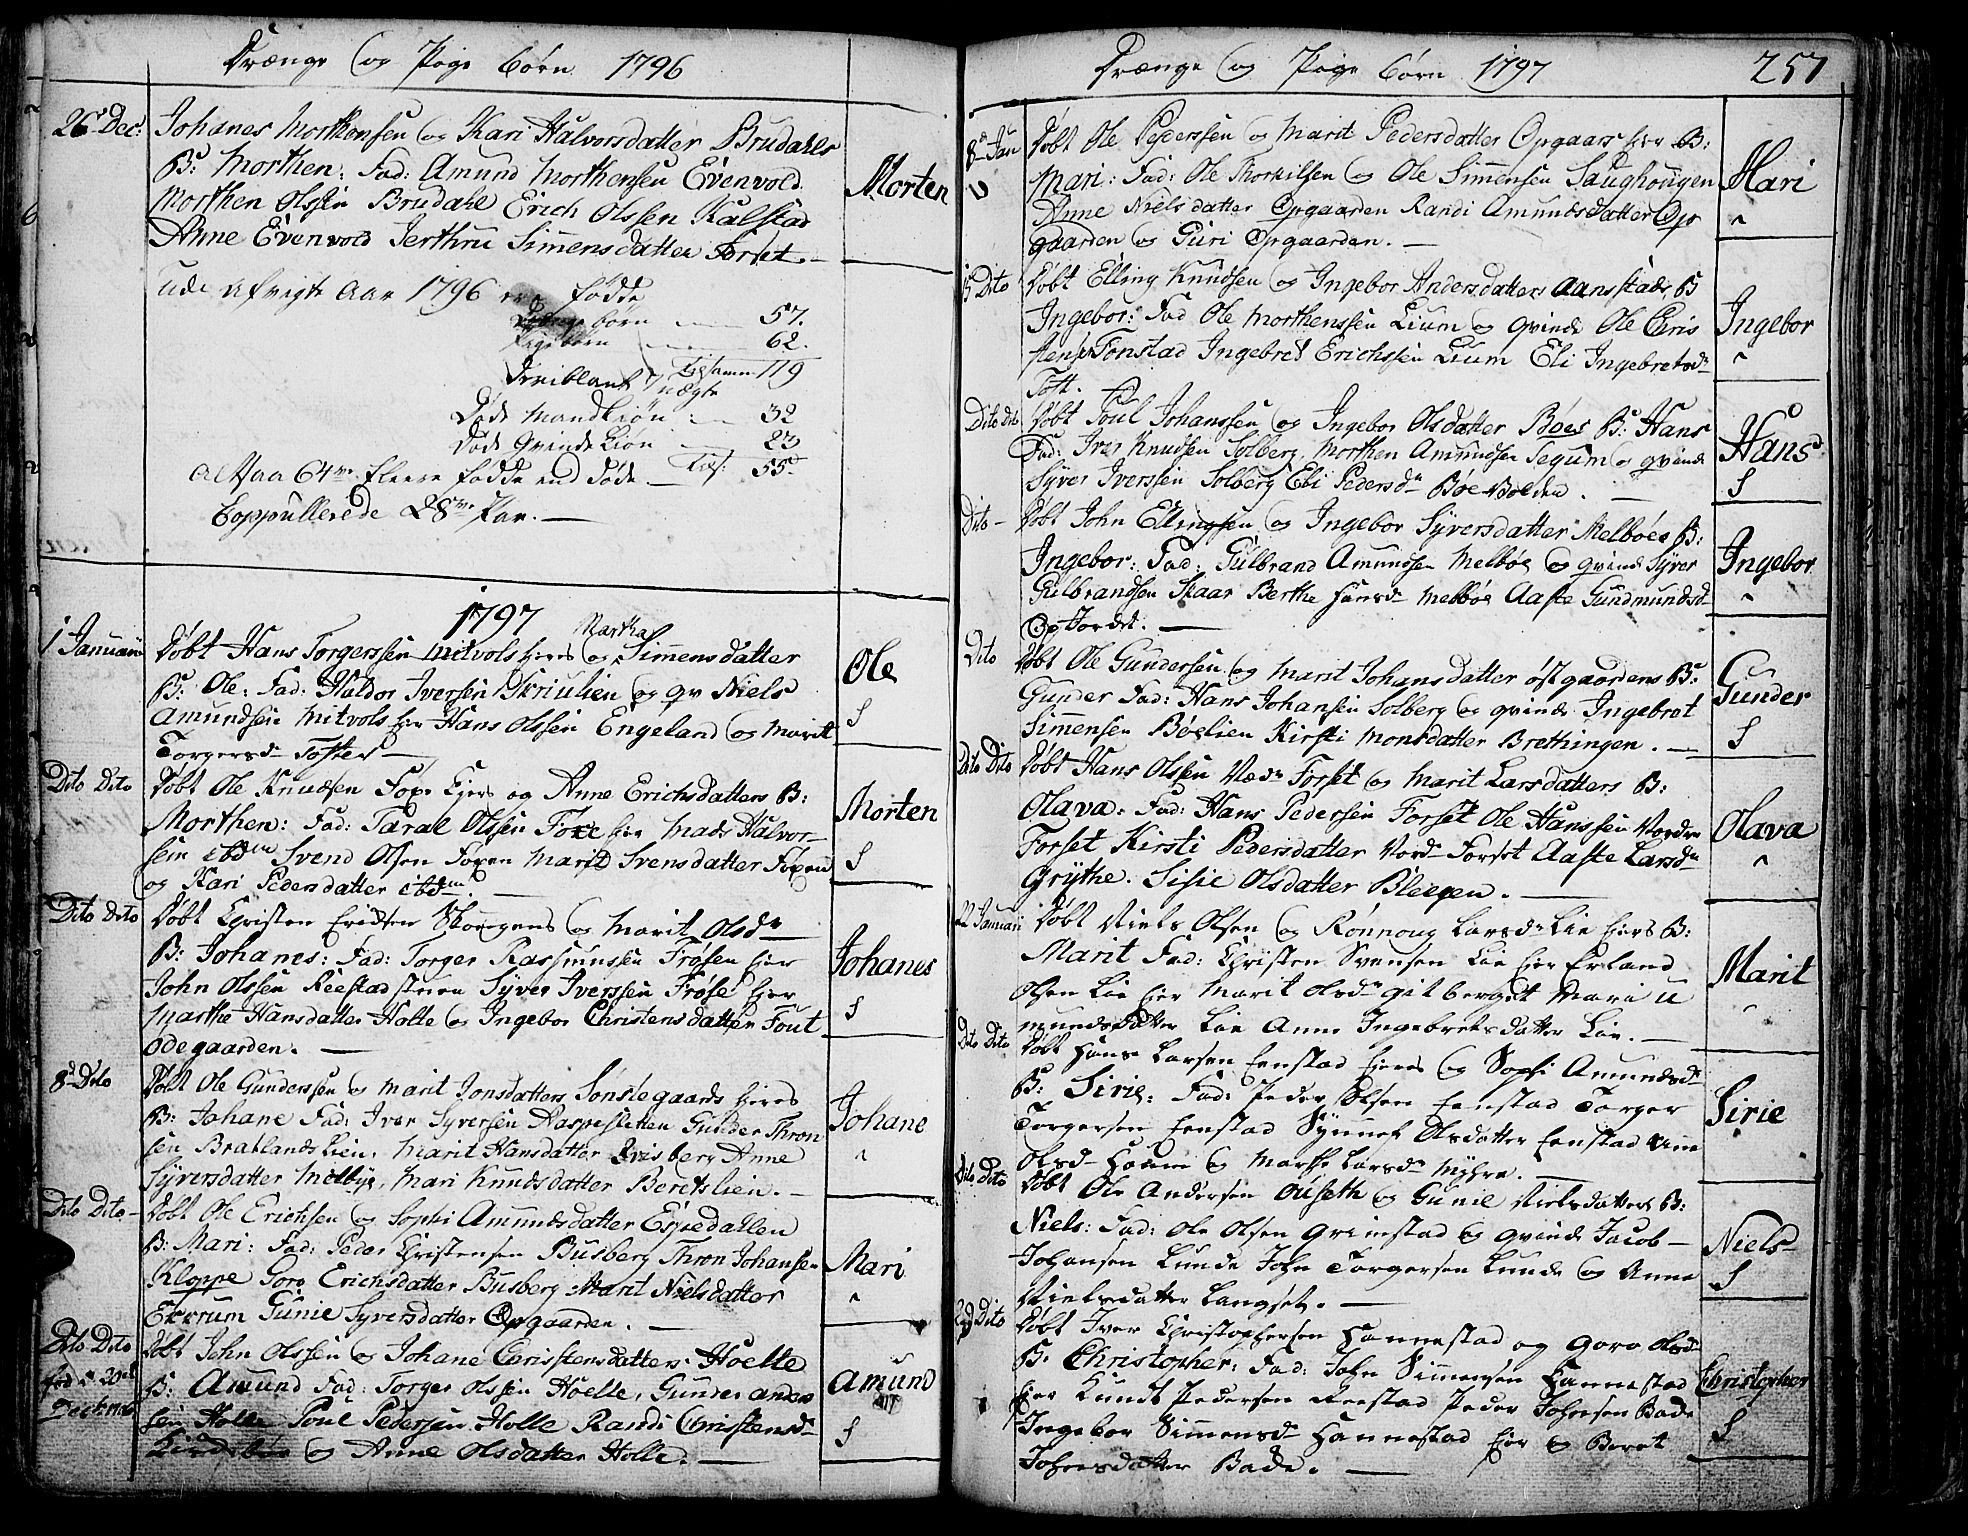 Drænge og Pige Børn 1796
26 Dec: Johanes Morthensen og Kari Halvorsdatter Brudahls
B: Morthen: Fad: Amund Morthensen Evenvold
Morthen Olssen Brudahl Erich Olssen Kalstad
Anne Evenvold Jerthru Simensdatter Forset. —
Morten
Udi afvigte Aar 1796 ere fødde
Drenge børn — 57.
Pigebørn — 62.
Tilsamm 119
Iveiblant 7 uægte
Døde Mandkiøn — 32
Døde Qvindekiøn — 23
Til: 55
Altsaa 64 fleere fødde end døde —
Coppullerede 28 Par. —
1797
1 Januari Døbt Hans Torgerssen Mitvols Eiers og Martha Simensdatter
B: Ole: Fad: Haldor Iversen Skriulien og qv Niels
Amundsen Mitvols Eier Hans Olssen Engeland og Marit
Torgersd Toftes —
Ole
Dito Dito Døbt Ole Knudsen Foxe Ejers og Anne Erichsdatters B:
Morthen: Fad: Taral Olssen Foxe Eier Mads Halvor-
sen ibdm Svend Olsen Foxen Marit Svensdatter Foxen
og Kari Pedersdatter ibdm. —
Morten
Dito Dito Døbt Christen Skougens og Marit Olsd
B: Johanes: Fad: Torger Rasmussen Frøsen Eier
John Olssen Reestad Syver Iverssen Frøse Eier
Marthe Hansdatter Holte og Ingebor Christensdatter Fout
ødegaarden. —
Johanes
8 Dito Døbt Ole Gunderssen og Marit Jonsdatters Sønstegaards Eiers
B: Johane Fad: Iver Syversen Gunder Thron
sen Bratlandslien, Marit Hansdatter Risberg Anne
Syversdatter Melbye, Mari Knudsdatter Beretslien. —
Johane
Dito Dito — Døbt Ole Erichsen og Sophi Amundsdatter Espedahlen
B: Mari: Fad: Peder Christensen Busberg Thron Johansen
Kloppe Goro Erichsdatter Busberg Marit Nielsdatter
Ekkrum Gunie Syversdatter Opgaarden. —
Mari
Dito Dito Døbt John Olssen og Johane Christensdatters Hoelte
B: Amund Fad: Torger Olssen Hoelte, Gunder Anders
sen Holte Poul Pedersen Holle Randi Christensd
og Anne Olsdatter Holle. —
Amund
Drænge og Pige Børn 1797
257
8 Jan Døbt Ole Pederssen og Marit Pedersdatter Opgaars Eier B:
Mari: Fad: Ole Thorkilsen og Ole Simensen Saughougen
Anne Nielsdatter Opgaarden Randi Amundsdatter Op
gaarden og Guri Opgaarden. —
Mari
15 Dito Døbt Elling Knudsen og Ingebor Andersdatters Aansstads B
Ingebor: Fad Ole Morthenssen Lium og qvinde Ole Chris
stensen Fonstad Ingebret Erichssen Lium Eli Ingebretsd
Toft.
Ingebor
Dito Dito Døbt Poul Johanssen og Ingebor Olsdatter Bøes B: Hans
Fad: Iver Knudsen Solberg, Morthen Amundsen Segum og qvinde
Syver Iverssen Solberg Eli Pedersd Bøe Volden. —
Hans
Dito — Døbt John Ellingssen og Ingebor Syversdatter Melbøes B:
Ingebor: Fad: Gulbrand Amundsen Melbøe og qvinde Syver
Gulbrandsen Skaar Berthe Hansd Melbøe Aaste Gundmundsd
Op Jordet. —
Ingebor
Dito Døbt Ole Gundersen og Marit Johansdatter Østgaardens B:
Gunder Fad: Hans Johansen Solberg og qvinde Ingebret
Simensen Bøelien Kirsti Monsdatter Brethingen. —
Gunder
Dito Dito Døbt Hans Olssen Forset og Marit Larsdatters B:
Olava: Fad: Hans Pedersen Forset Ole Hanssen
Forset Kirsti Pedersdatter Forset Aaste Larsd
Grythe. Sisie Olsdatter Bleegen. —
Olava
22 Januari Døbt Niels Olsen og Rønnoug Larsd Lie Eiers B:
Marit Fad: Christen Svensen Lie Eier Erland
Olsen Lie Eier Marit Olsd Gitberget Mari A
mundsdatter Lie Anne Ingebretsdatter Lie. —
Marit
Dito Dito Døbt Hans Larsen Eenstad Eiers og Sophi Amundsd
B: Sirie: Fad: Peder Olsen Eenstad Torger
Torgersen Eenstad Synnef Olsdatter Eenstad Anne
Olsd og Marthe Larsd Myhre. —
Sirie
Dito Dito Døbt Ole Andersen Ouseth og Gunie Nielsdatters B:
Niels: Fad: Ole Olsen Grimstad og qvinde Jacob —
Johansen Lunde John Torgersen Lunde og Anne
Nielsdatter Langset. —
Niels
Dito Døbt Iver Christophersen Hannestad og Goro Olsd
B: Christopher: Fad: John Simensen Hannestad
Eier Knudt Pedersen Reestad Peder Johnsen Bade
Ingebor Simensd Hannestad Eier og Beret
Johnsdatter Bade. —
Christopher